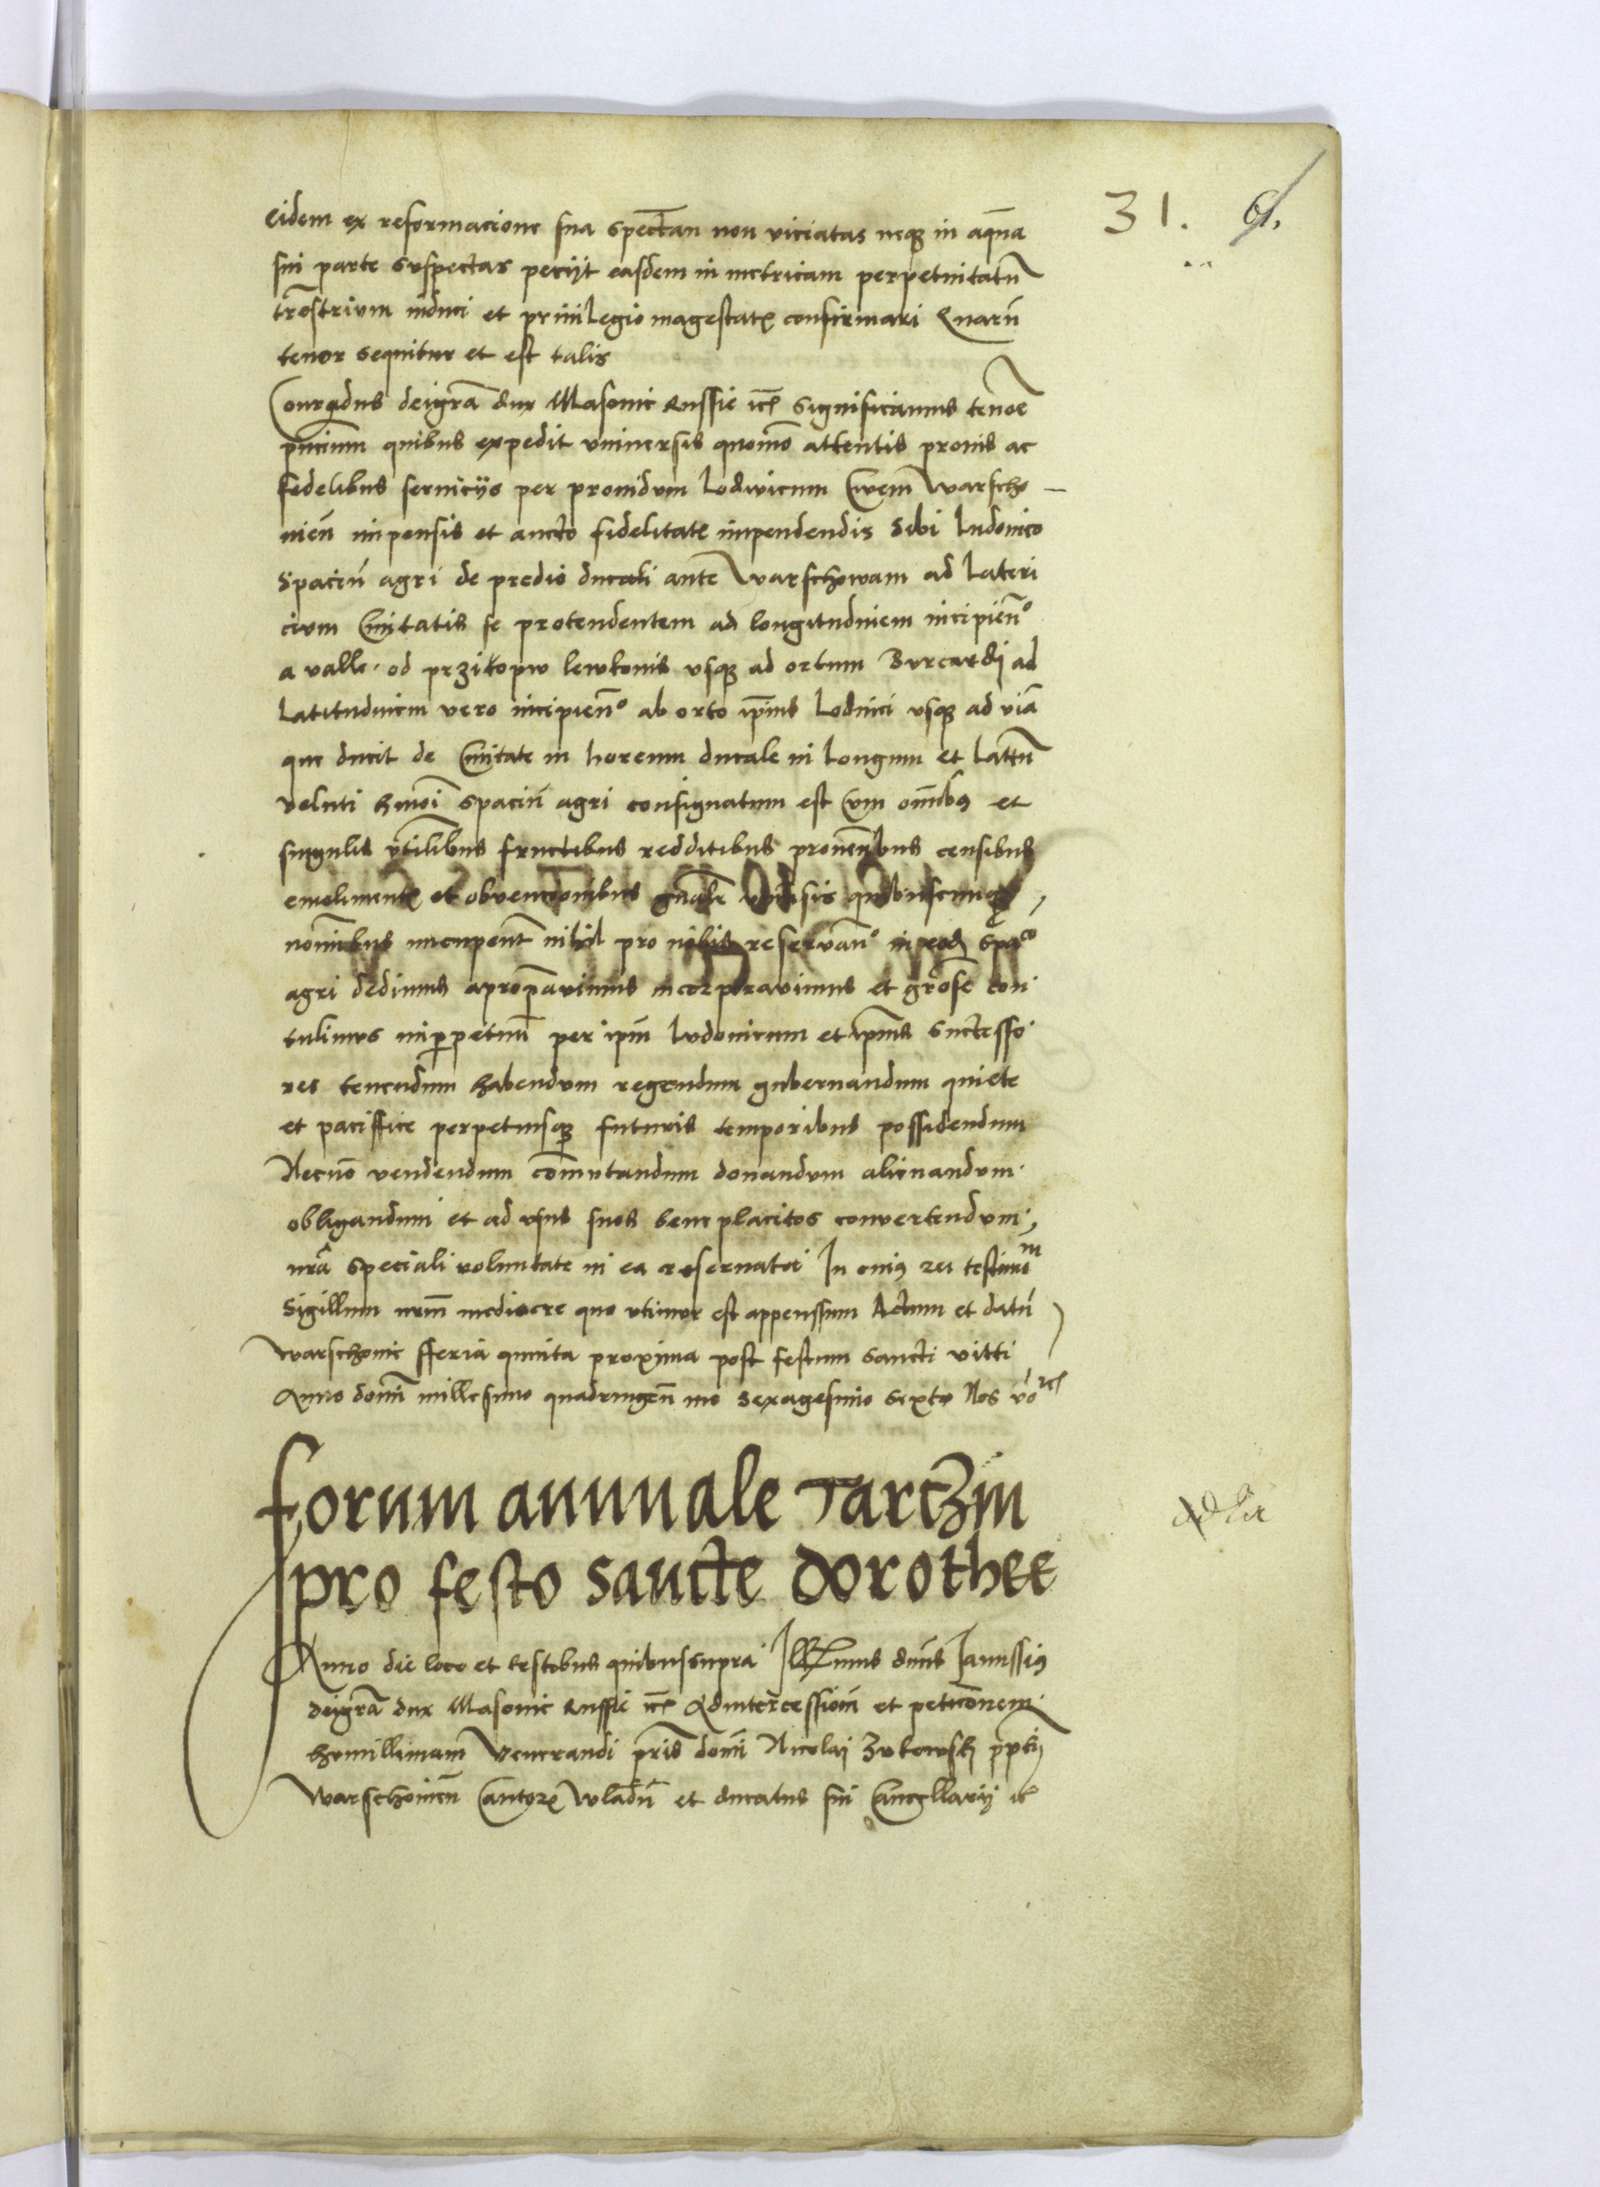 31. 61.
Eidem ex reformacione sua spectan̄ non viciatas neqꝫ in aq̄ua
sui parte suspectas peciit easdem in metricam perpetuitatū
tr̄estrium induci et priuilegio magestatꝭ confirmari Quarū
tenor sequitur et est talis
Conradus deigrā dux Masouie Russie etc̄ significamus tenore
pn̄cium quibus expedit vniuersis quomō attentis pronis ac
fedelibus seruicys per prouidum Lodwicum Ciuem Warscho
uien̄ impensis et aucto fidelitate impendendis Sibi Ludouico
Spaciū agri de predio ducali ante Warschowam ad Lateri
cium Ciuitatis se protendentem ad longitudinem incipien°
a valle od przikopu lewkonis vsqꝫ ad ortum Burcardi ad
Latitudinem vero incipien° ab orto ip̄ius Loduici vsqꝫ ad viā
que ducit de Ciuitate in horeum ducale in Longum et Lattū
veluti hmōi spaciū agri consignatum est cum om̄ibꝯ et
singulis vtilibus fructibus redditibus prouen̄ibus censibus
emolimentꝭ et obvencionibus gn̄alr vniuersis quibuscumqꝫ
nom̄ibus nuncupent̄ nihil pro nobis reseruan° in eodꝫ spa°
agri dedimus apropauimus incorporavimus et grōse con
tulimus inp̄petuū per ip̄m Ludouicum et ip̄ius successo
res tenendum habendum regendum gubernandum quiete
et paciffice perpetuisqꝫ futuris temporibus possidendum
Necnō vendendum com̄utandum donandum alienandum
obligandum et ad vsus suos bene placitos convertendum
nrā speciali voluntate in ea reseruata In cuiꝯ rei testimom
Sigillum nrm̄ mediocre quo vtimur est appenssum Actum et datū
Warschouie fferia quinta proxima post festum sancti vitti
Anno domī millesimo quadringen̄mo sexagesimo sexto Nos vō etc̄
forum annuale Tarczin
pro festo sancte dorothee
Anno die loco et testibus quibus supra Ill Imus dn̄s Janussiꝯ
deigrā dux Masouie Russie etc̄ Ad intercessiom̄ et peticionem
humillimam Venerandi pr̄is domī Nicolai Zukowskj pp̄ti
Warschouien̄ Cantorꝭ Wladn̄ et ducatus sui Cancellarij etc̄